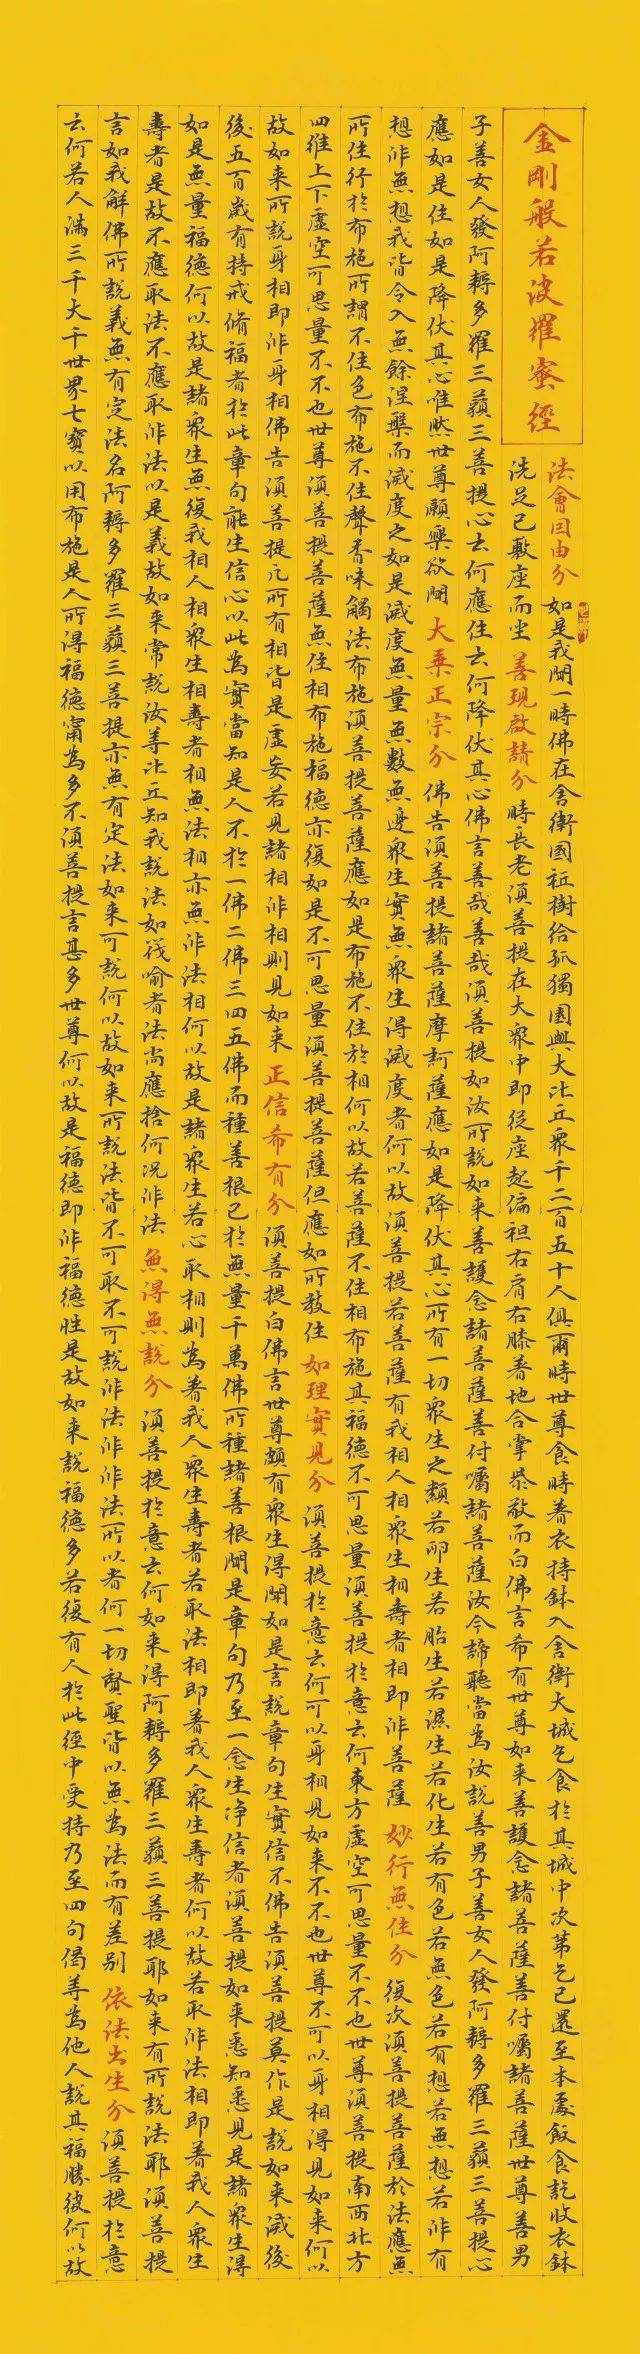 金剛般若波羅蜜經
法會因由分 如是我聞一時佛在舍衛國祗樹給孤獨園與大比丘眾千二百五十人俱爾時世尊食時著衣持鉢入舍衛大城乞食於其城中次第乞已還至本處飯食訖收衣鉢
洗足已敷座而坐 善現啟請分 時長老須菩提在大眾中即從座起偏袒右肩右膝著地合掌恭敬而白佛言希有世尊如來善護念諸菩薩善付囑諸菩薩世尊善男
子善女人發阿耨多羅三藐三菩提心云何應住云何降伏其心佛言善哉善哉須菩提如汝所說如來善護念諸菩薩善付囑諸菩薩汝今諦聽當為汝說善男子善女人發阿耨多羅三藐三菩提心
應如是住如是降伏其心唯然世尊願樂欲聞 大乘正宗分 佛告須菩提諸菩薩摩訶薩應如是降伏其心所有一切眾生之類若卵生若胎生若濕生若化生若有色若無色若有想若無想若非有
想非無想我皆令入無餘涅槃而滅度之如是滅度無量無數無邊眾生實無眾生得滅度者何以故須菩提若菩薩有我相人相眾生相壽者相即非菩薩 妙行無住分 復次須菩提菩薩於法應無
所住行於布施所謂不住色布施不住聲香味觸法布施須菩提菩薩應如是布施不住於相何以故若菩薩不住相布施其福德不可思量須菩提於意云何東方虛空可思量不不也世尊須菩提南西北方
四維上下虛空可思量不不也世尊須菩提菩薩無住相布施福德亦復如是不可思量須菩提菩薩但應如所教住 如理實見分 須菩提於意云何可以身相見如來不不也世尊不可以身相得見如來何以
故如來所說身相即非身相佛告須菩提凡所有相皆是虛妄若見諸相非相則見如來 正信希有分 須菩提白佛言世尊頗有眾生得聞如是言說章句生實信不佛告須菩提莫作是說如來滅後
後五百歲有持戒脩福者於此章句能生信心以此為實當知是人不於一佛二佛三四五佛而種善根已於無量千萬佛所種諸善根聞是章句乃至一念生淨信者須菩提如來悉知悉見是諸眾生得
如是無量福德何以故是諸眾生無復我相人相眾生相壽者相無法相亦無非法相何以故是諸眾生若心取相則為著我人眾生壽者若取法相即著我人眾生壽者何以故若取非法相即著我人眾生
壽者是故不應取法不應取非法以是義故如來常說汝等比丘知我說法如筏喻者法尚應捨何況非法 無得無說分 須菩提於意云何如來得阿耨多羅三藐三菩提耶如來有所說法耶須菩提
言如我解佛所說義無有定法名阿耨多羅三藐三菩提亦無有定法如來可說何以故如來所說法皆不可取不可說非法非非法所以者何一切賢聖皆以無為法而有差別 依法出生分 須菩提於意
云何若人滿三千大千世界七寶以用布施是人所得福德甯為多不須菩提言甚多世尊何以故是福德即非福德性是故如來說福德多若復有人於此經中受持乃至四句偈等為他人說其福勝彼何以故